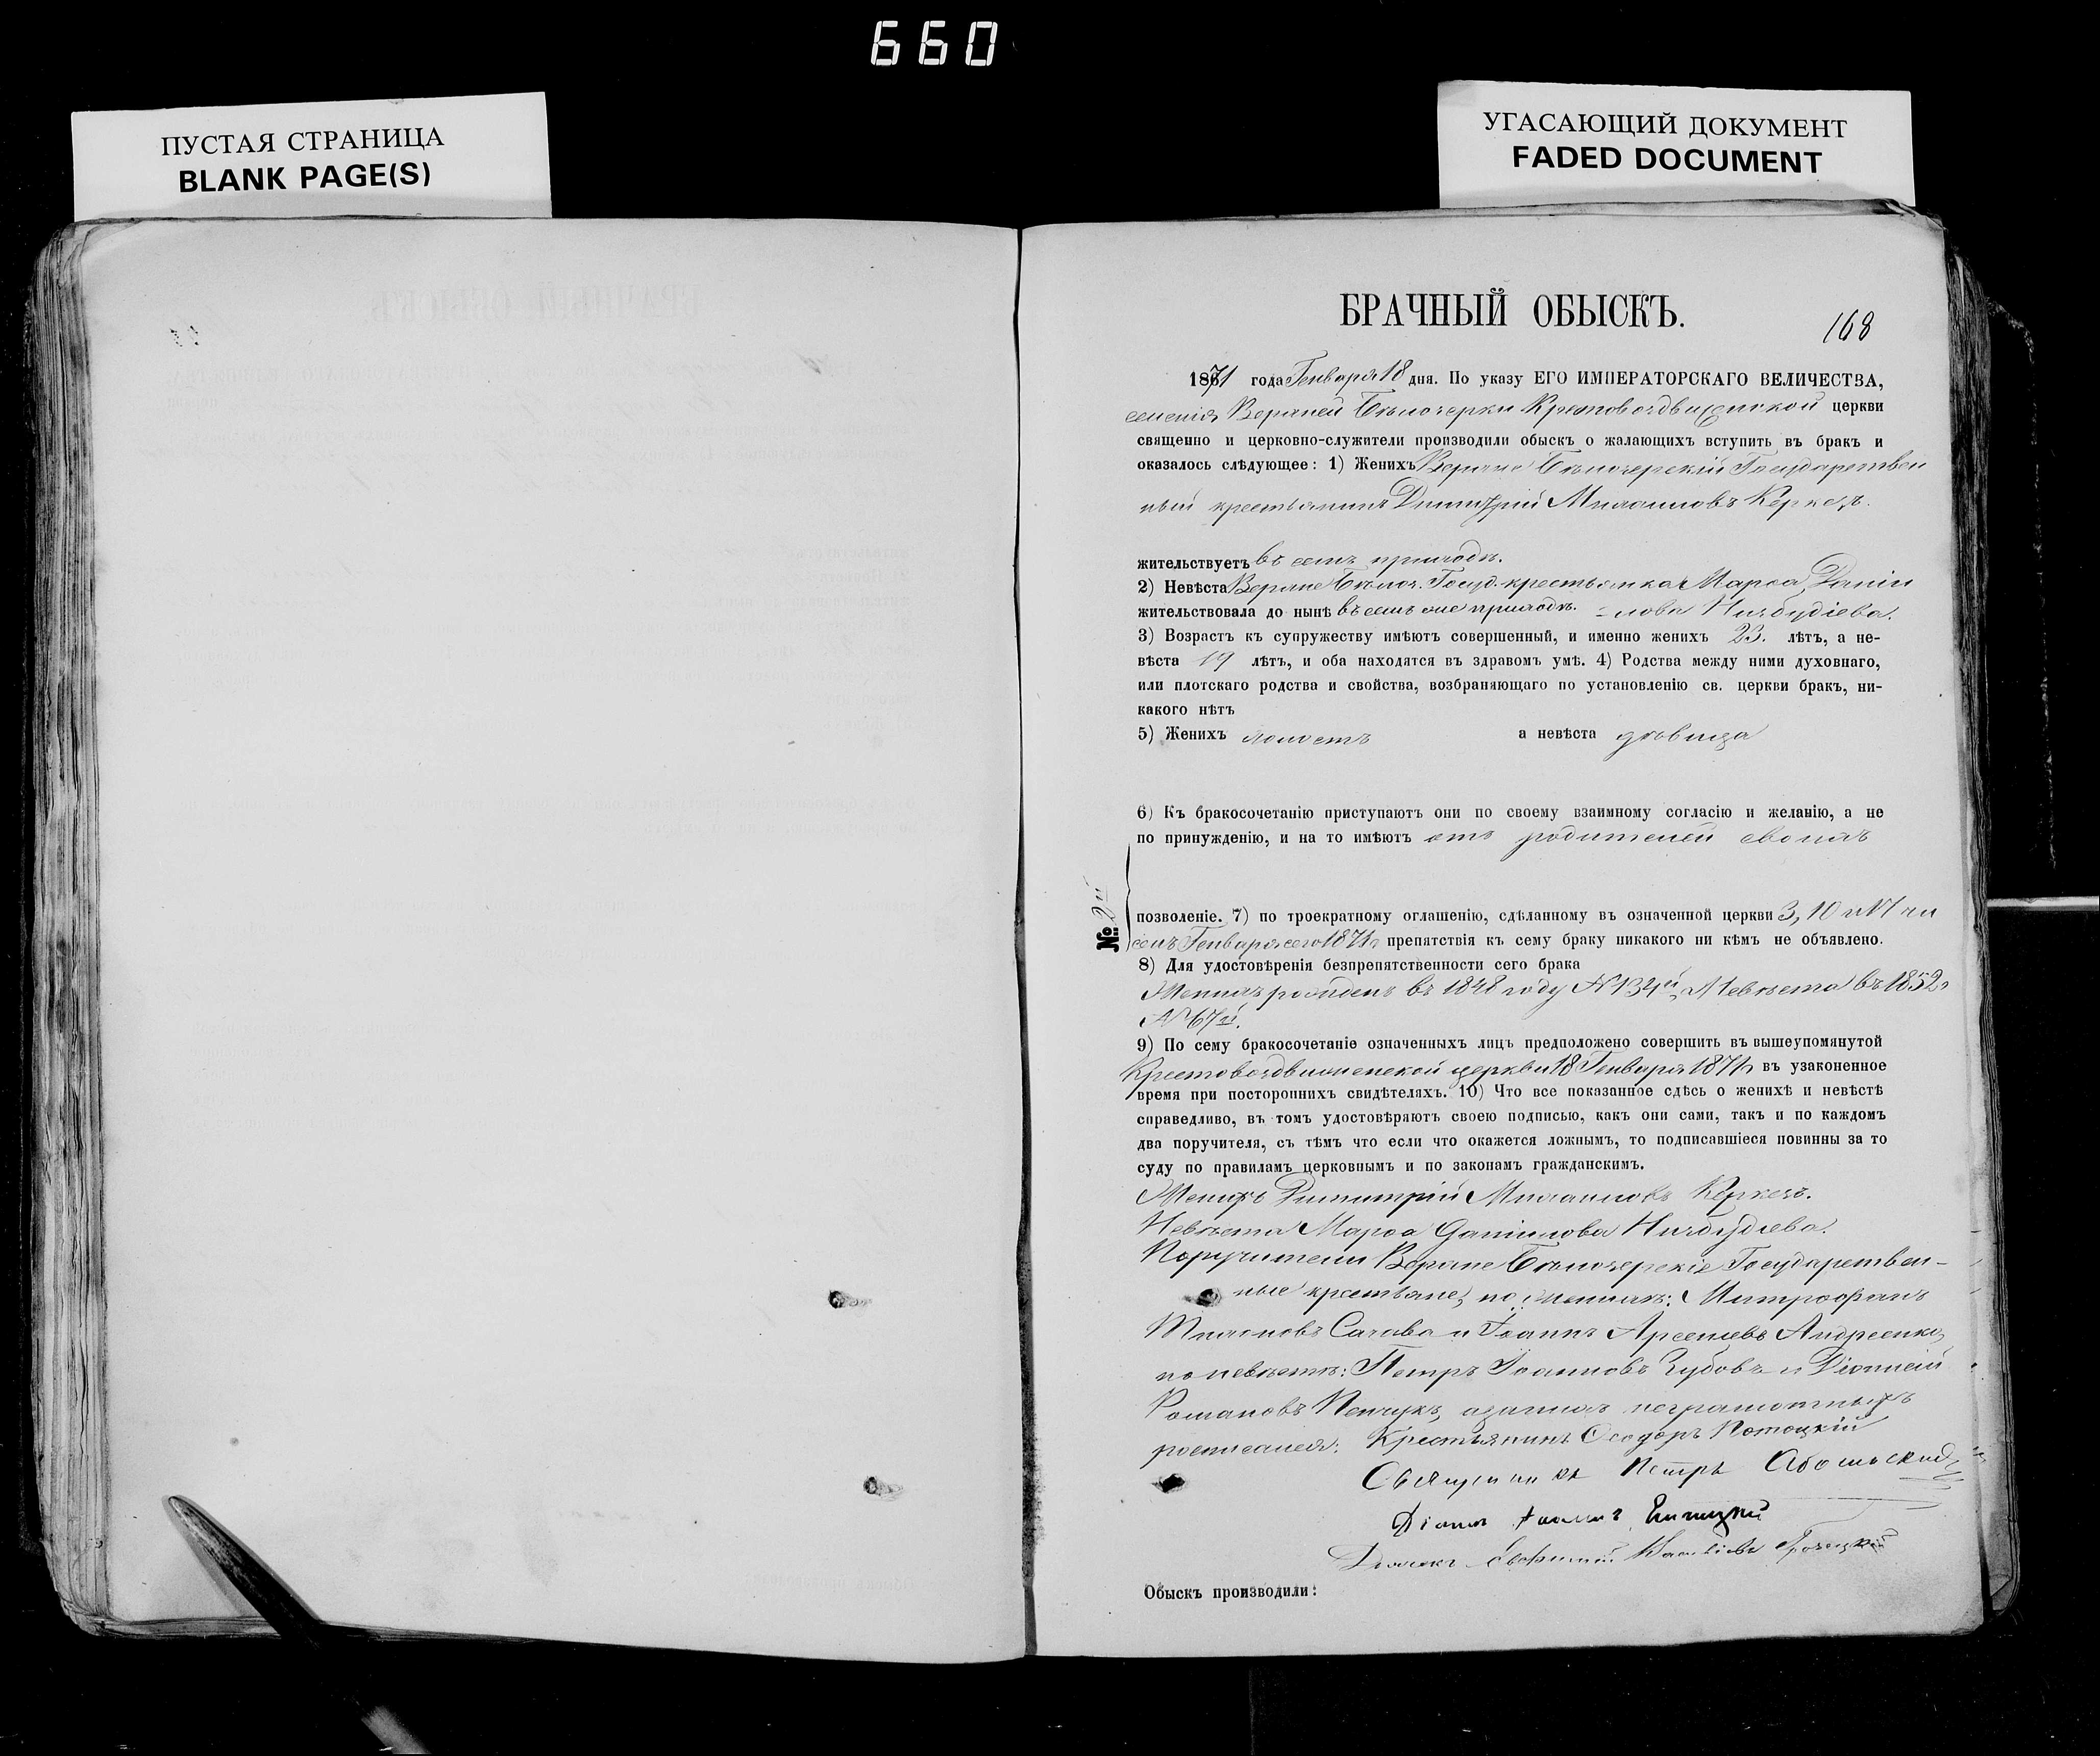 660
ПУСТАЯ СТРАНИЦА
BLANK PAGE(S)
УГАСАЮЩИЙ ДОКУМЕНТ
FADED DOCUMENT
БРАЧНЫЙ ОБЫСКЪ.
168
1871 года Генваря 18 дня. По указу ЕГО ИМПЕРАТОРСКАГО ВЕЛИЧЕСТВА,
селенія Верхней Бѣлозерки Крестовоздвиженской церкви
священно и церковно-служители производили обыскъ о жалающихъ вступить въ бракъ и
оказалось слѣдующее: 1) Женихъ Верхне Бѣлозерскій Государствен
ный крестьянинъ Димитрій Михаиловъ Керкезъ.
жительствуетъ въ семъ приходѣ.
2) Невѣста Верхне Бѣлоз. Госуд. крестьянка Марѳа Даніи
жительствовала до нынѣ въ семъ же приходѣ. = лова
3) Возрастъ къ супружеству имѣютъ совершенный, и именно женихъ 23. лѣтъ, а не-
вѣста 19 лѣтъ, и оба находятся въ здравомъ умѣ. 4) Родства между ними духовнаго,
или плотскаго родства и свойства, возбраняющаго по установленію св. церкви бракъ, ни-
какого нѣтъ
5) Женихъ холостъ а невѣста дѣвица
6) Къ бракосочетанію приступаютъ они по своему взаимному согласію и желанію, а не
по принужденію, и на то имѣютъ отъ родителей своихъ
№ 2й
позволеніе. 7) по троекратному оглашенію, сдѣланному въ означенной церкви 3, 10 и 17 чи
селъ Генваря сего 1871 г. препятствія къ сему браку никакого ни кѣмъ не объявлено.
8) Для удостовѣренія безпрепятственности сего брака
Женихъ рожденъ въ 1848 году № 134й, Невѣста въ 1852 г
№ 67й.
9) По сему бракосочетаніе означенныхъ лицъ предположено совершить въ вышеупомянутой
Крестовоздвиженской церкви 18 Генваря 1871 г въ узаконенное
время при постороннихъ свидѣтеляхъ. 10) Что все показанное сдѣсь о женихѣ и невѣстѣ
справедливо, въ томъ удостовѣряютъ своею подписью, какъ они сами, такъ и по каждомъ
два поручителя, съ тѣмъ что если что окажется ложнымъ, то подписавшіеся повинны за то
суду по правиламъ церковнымъ и по законамъ гражданскимъ.
Женихъ Димитрій Михаиловъ Керкезъ.
Невѣста Марѳа Даниилова
Поручители Верхне Бѣлозерскіе Государствен-
ные крестьяне, по женихѣ: Митрофанъ
и Іоаннъ Арсеніевъ Андреенко,
по невѣстѣ: Петръ Іоанновъ Зубовъ и Діонисій
Романовъ а за нихъ неграмотныхъ
росписался: Крестьянинъ Ѳеодоръ Потоцкій
Священникъ Петръ
Іоаннъ
Обыскъ производили: